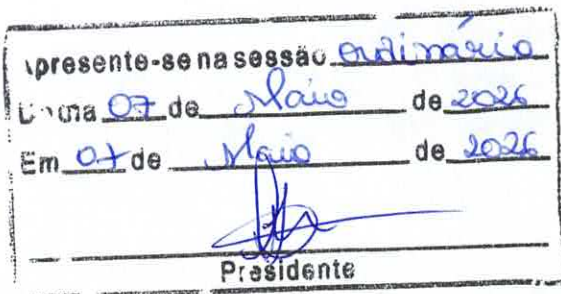 Apresente-se na sessão ordinário
Do dia 07 de Maio de 2026
Em 07 de Maio de 2026
Presidente